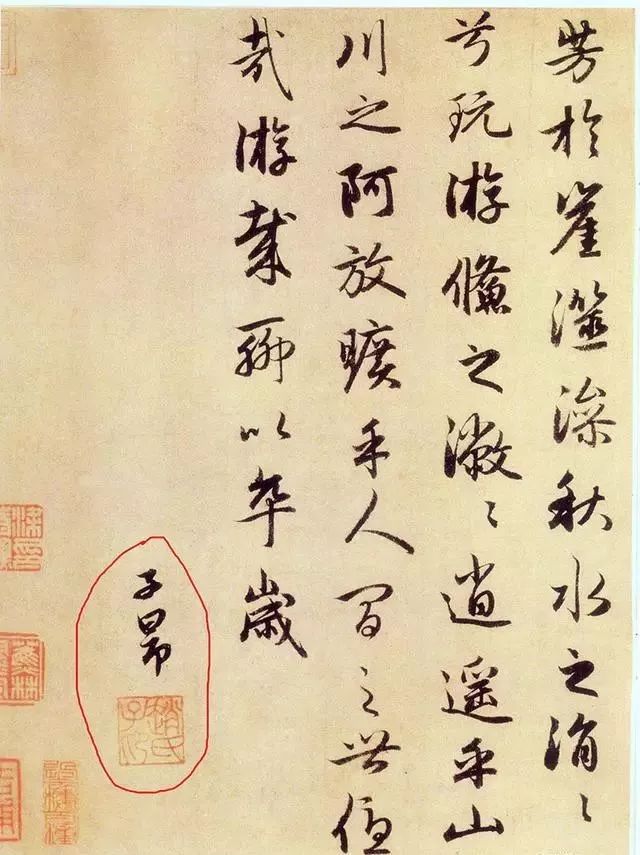 芳於崖澨澡秋水之涓〻
兮玩游儵之潎〻逍遥乎山
川之阿放曠乎人間之世優
哉游哉聊以卒歲
子昂
趙氏子昂